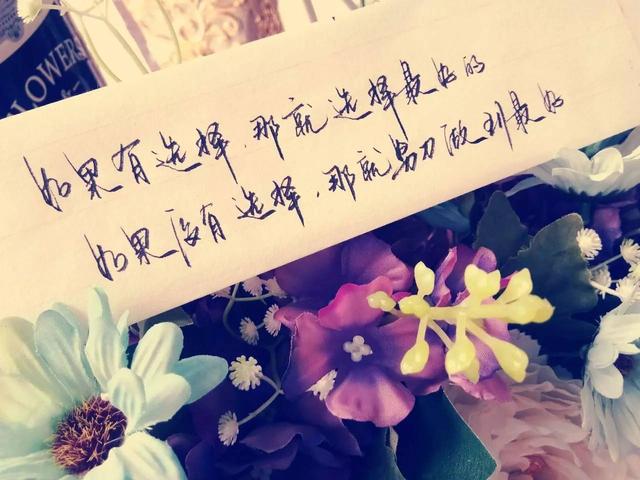 FLOWERS
如果有选择,那就选择最好的
如果没有选择,那就努力做到最好